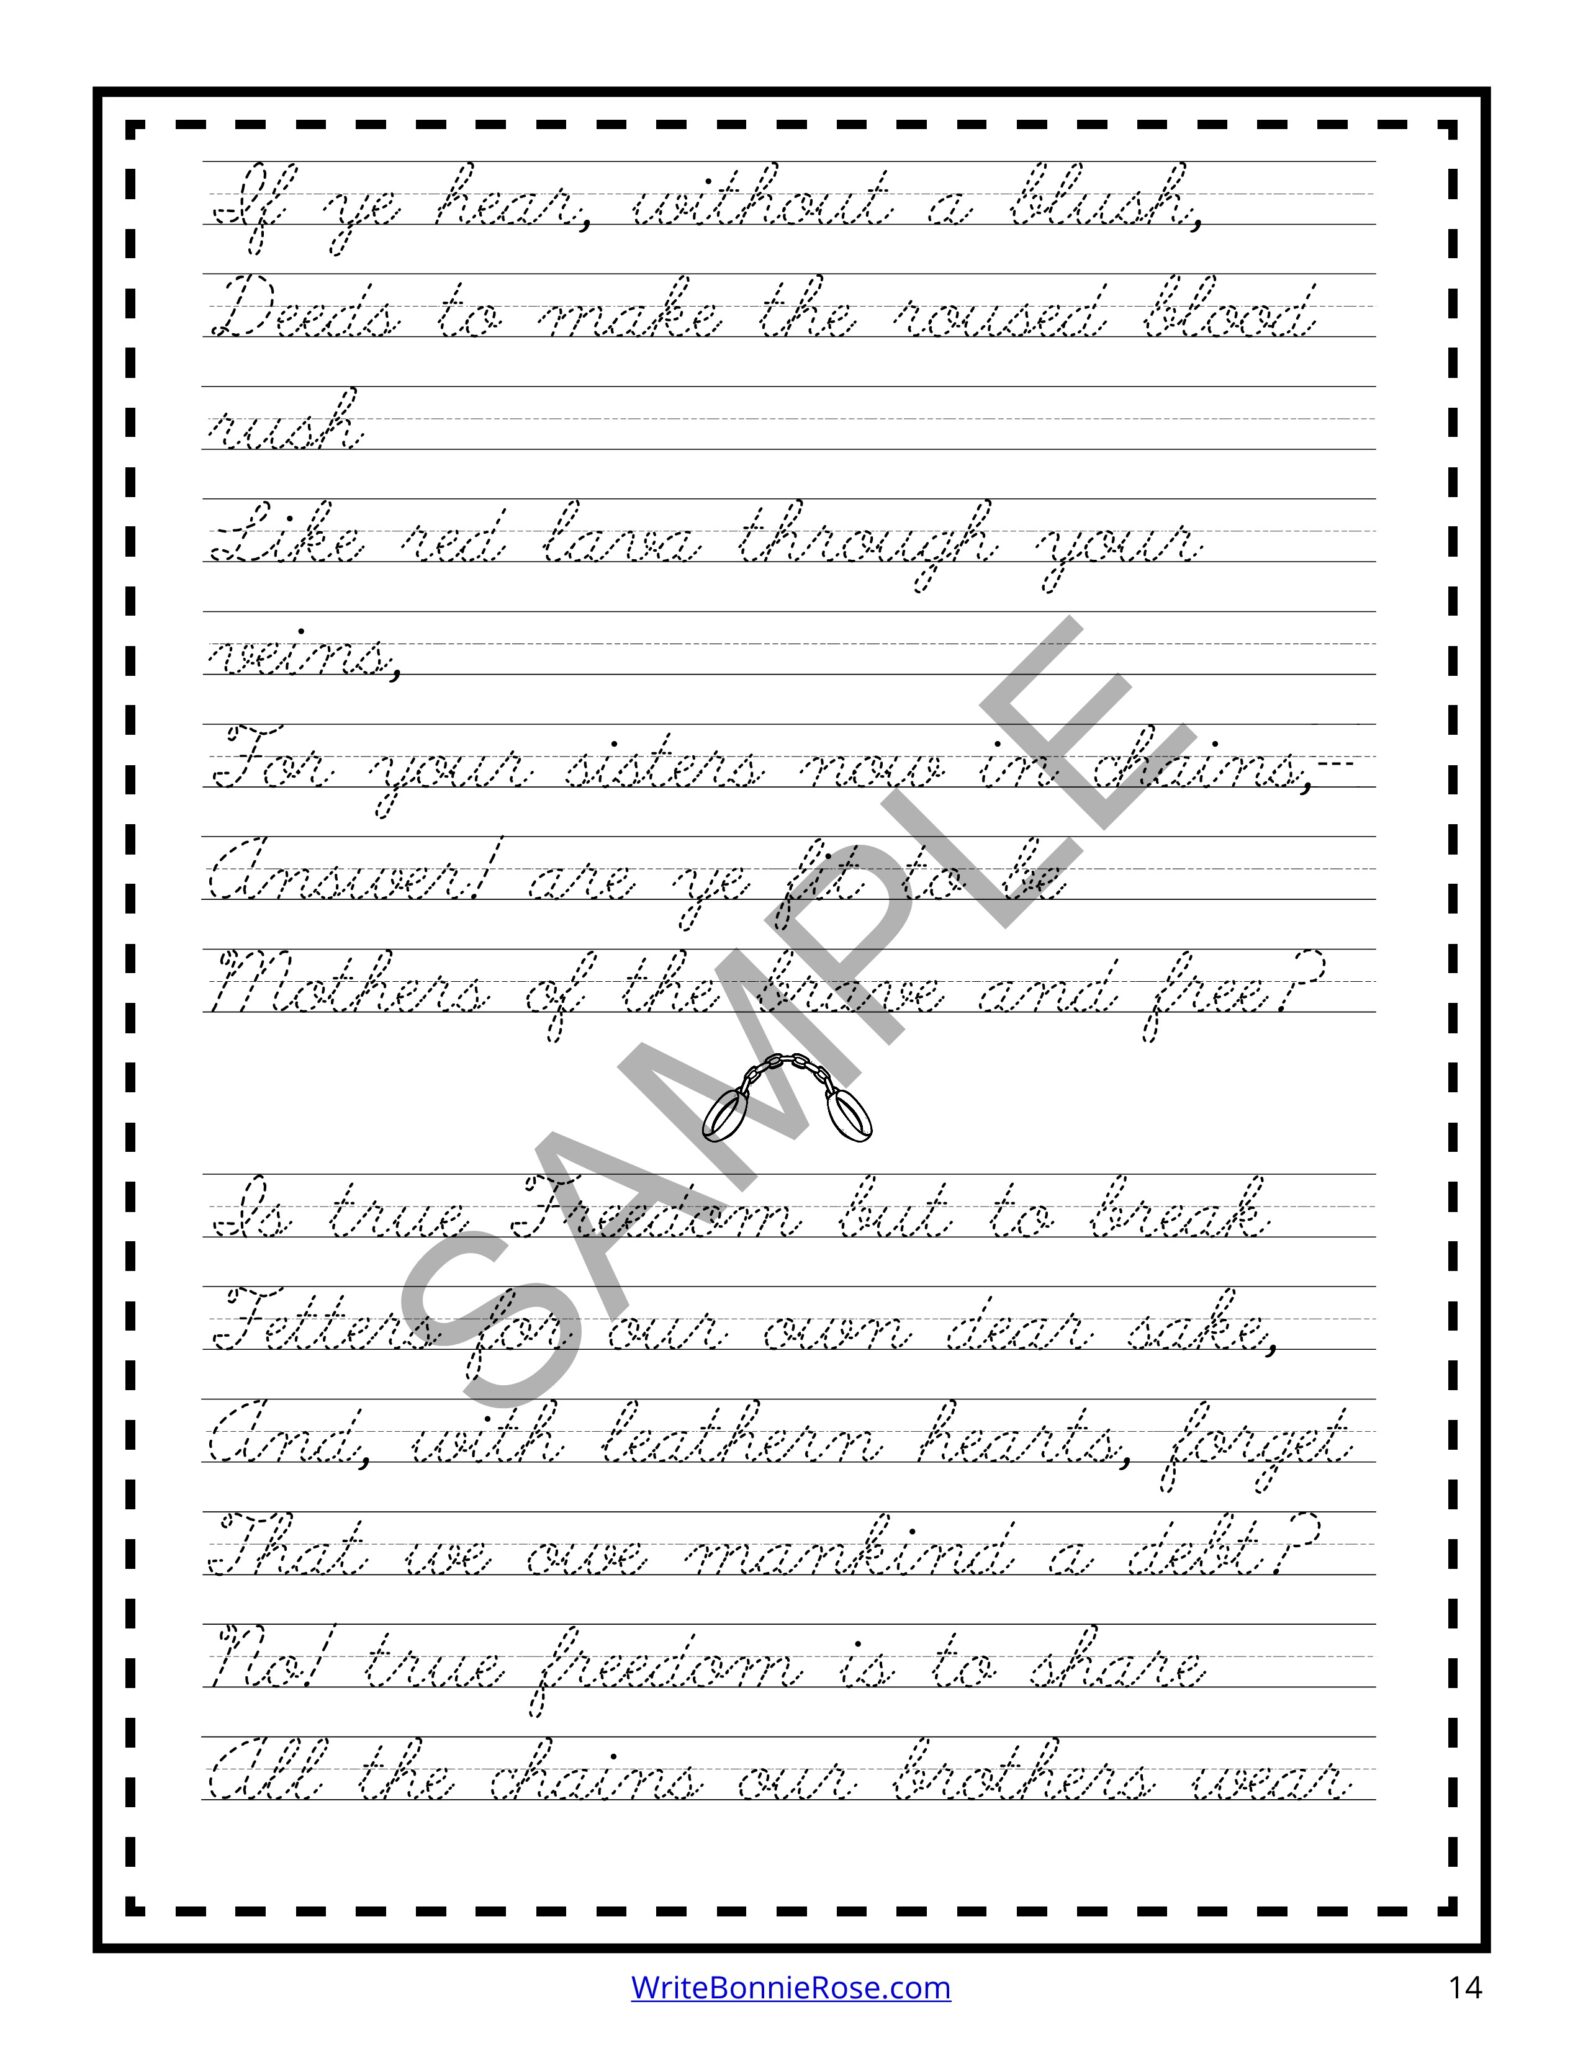 If ye hear, without a blush,
Deeds to make the roused blood
rush
Like red lava through your
veins,
For your sisters now in chains,—
Answer! are ye fit to be
Mothers of the brave and free?
Is true Freedom but to break
Fetters for our own dear sake,
And, with leathern hearts, forget
That we owe mankind a debt?
No! true freedom is to share
All the chains our brothers wear
SAMPLE
WriteBonnieRose.com 14